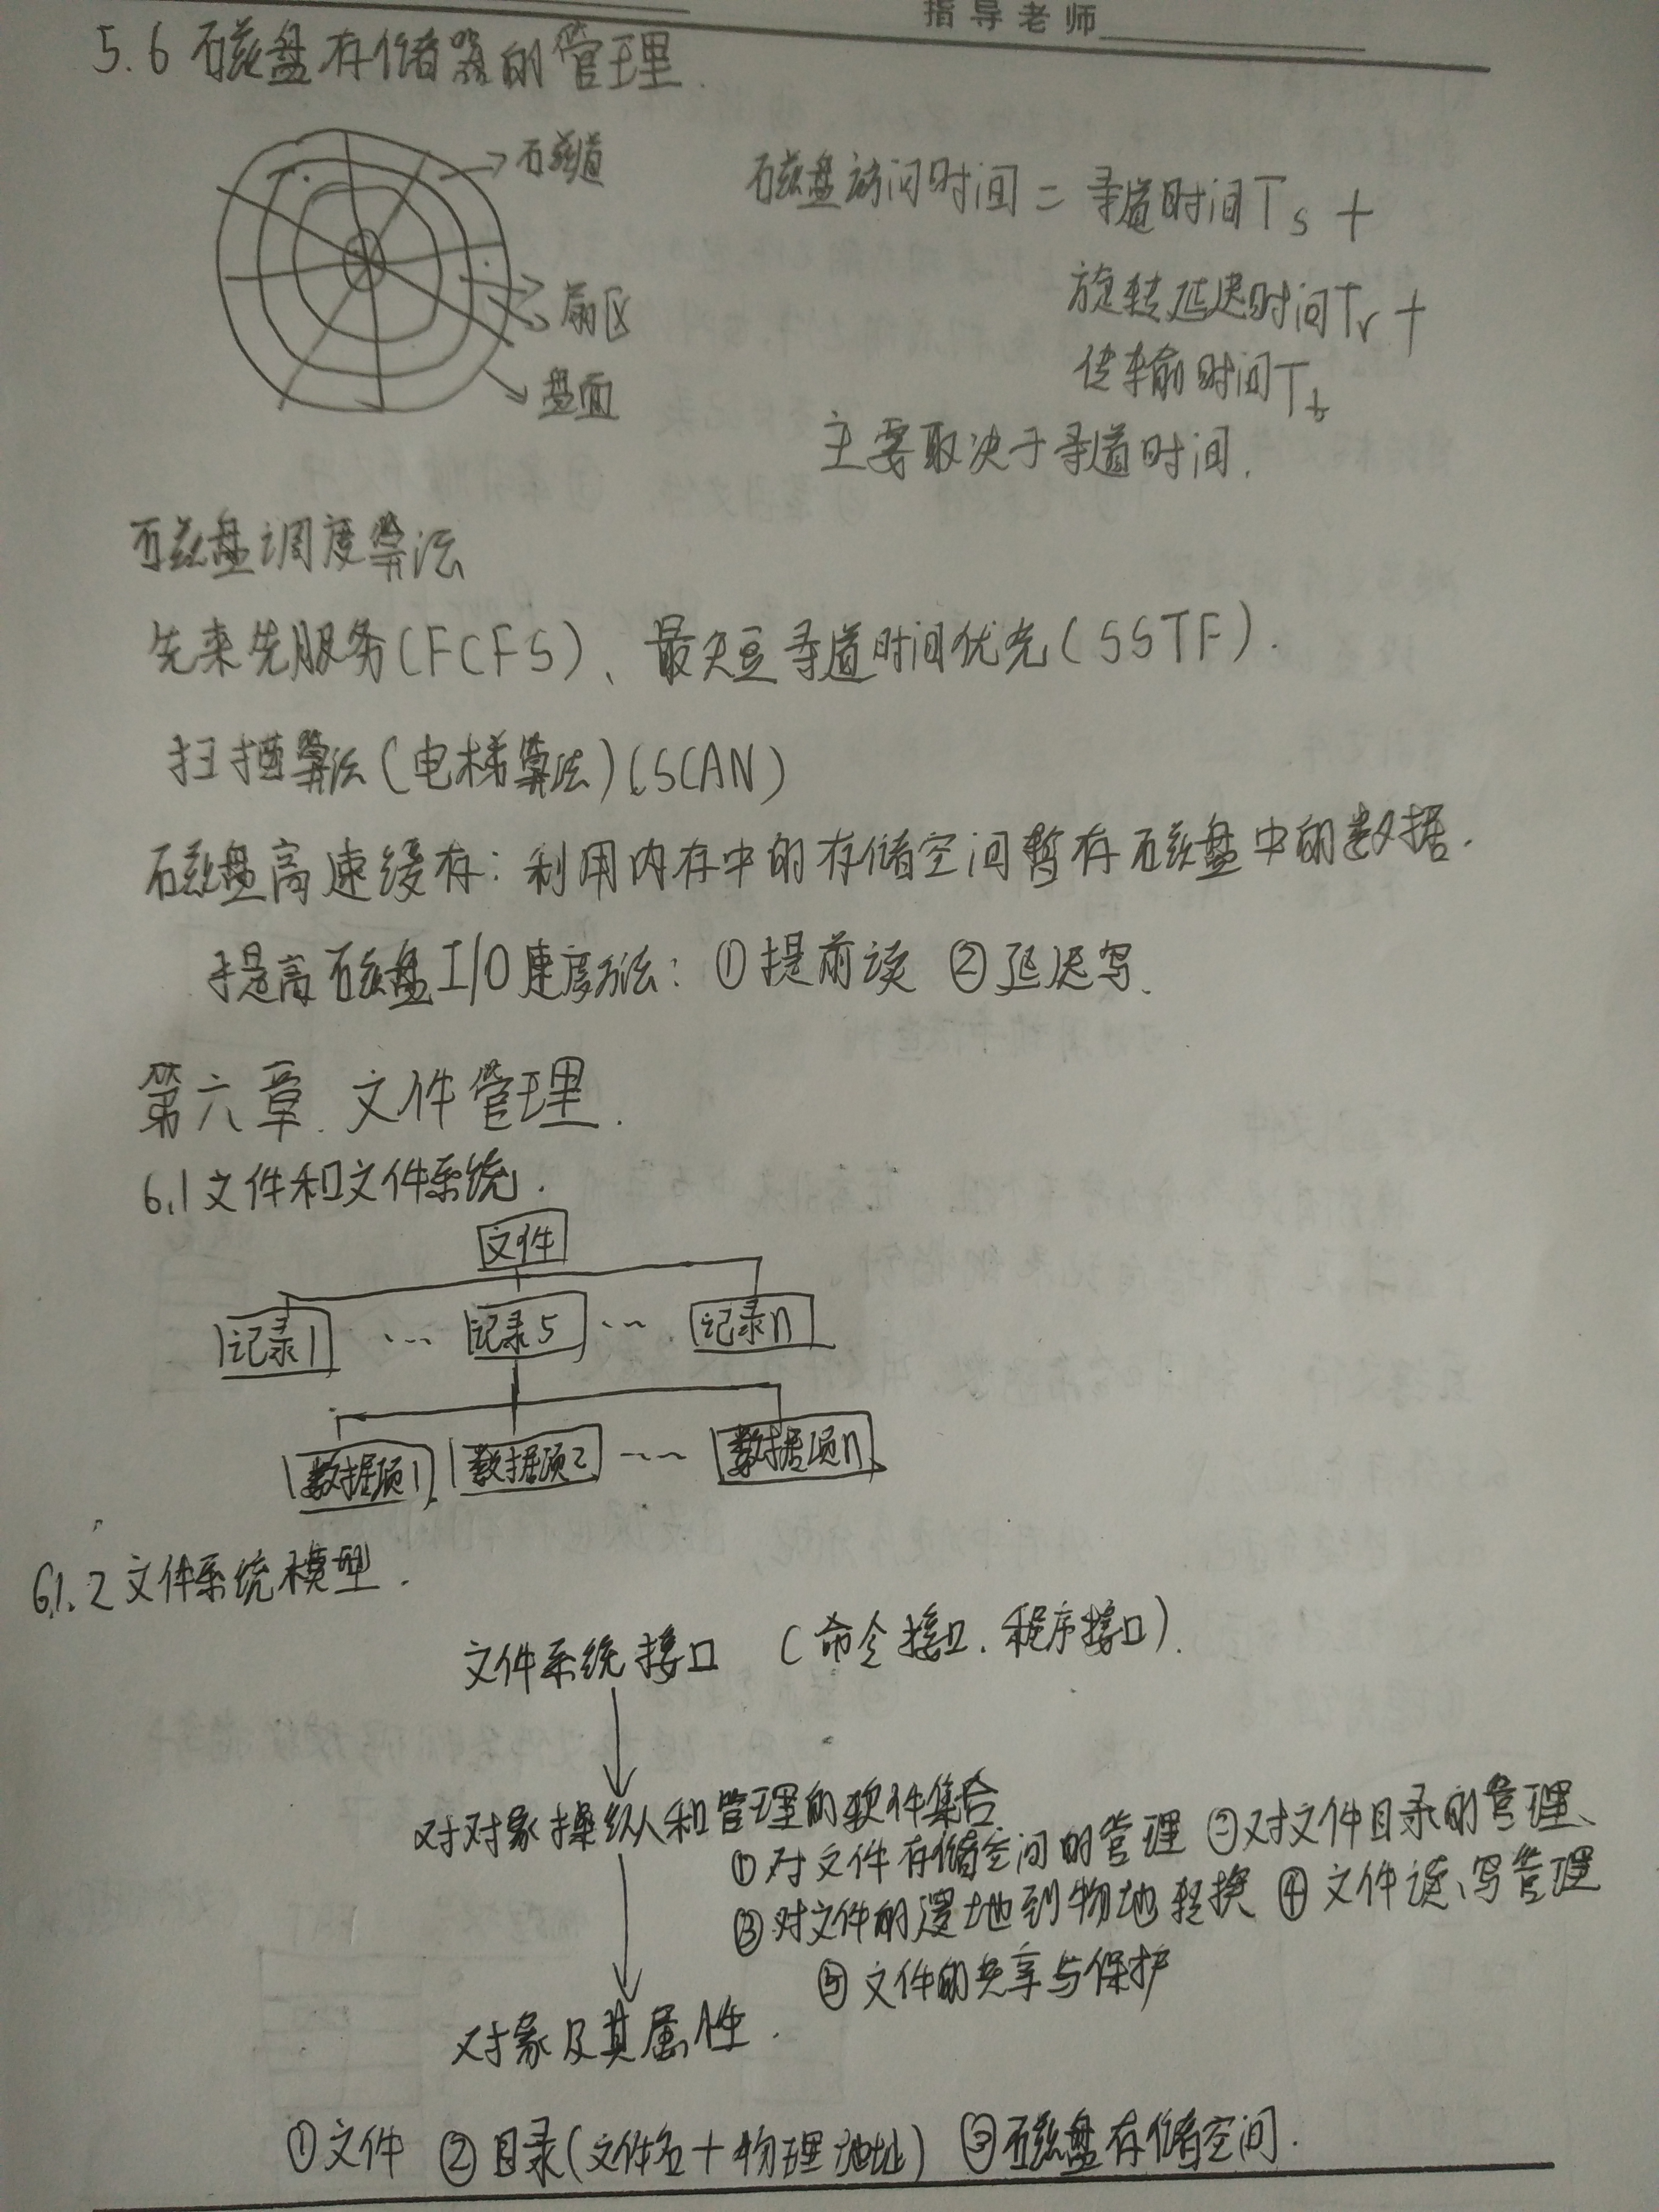 指导老师
5.6 磁盘存储器的管理.
磁道
扇区
盘面
磁盘访问时间 = 寻道时间Ts +
旋转延迟时间Tr +
传输时间Tt
主要取决于寻道时间.
磁盘调度算法
先来先服务(FCFS)、最短寻道时间优先(SSTF).
扫描算法(电梯算法)(SCAN)
磁盘高速缓存: 利用内存中的存储空间暂存磁盘中的数据.
提高磁盘I/O速度方法: ①提前读 ②延迟写.
第六章. 文件管理.
6.1 文件和文件系统.
文件
记录1 ... 记录5 ... 记录n
数据项1 数据项2 ... 数据项n
6.1.2 文件系统模型.
文件系统接口 (命令接口、程序接口).
对对象操纵和管理的软件集合
①对文件存储空间的管理 ②对文件目录的管理、
③对文件的逻地到物地转换 ④文件读、写管理
⑤文件的共享与保护
对象及其属性.
①文件 ②目录(文件名+物理地址) ③磁盘存储空间.